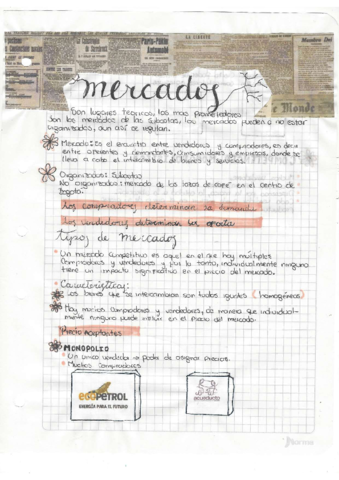 mercados
Son lugares teoricos, los mas
son los mercados de las subastas, los mercados pueden o no estar
organizados, aun asi se regulan.
Mercado: Es el encuentro entre vendedores y compradores, es decir
entre oferentes y demandantes, consumidores y empresas, donde se
lleva a cabo el intercambio de bienes y servicios.
Organizados: Subastas
No organizados: mercado de las en el centro de
Bogota.
Los compradores determinan la demanda
Los vendedores determinan la oferta
Tipos de mercados
Un mercado competitivo es aquel en el que hay multiples
compradores y vendedores y por lo tanto, individualmente ninguno
tiene un impacto significativo en el precio del mercado.
Caracteristica:
Los bienes que se intercambian son todos iguales (homogéneos)
Hay varios compradores y vendedores, de manera que individual-
mente ninguno puede influir en el precio del mercado.
Precio aceptantes
MONOPOLIO
Un unico vendedor → poder de asignar precios.
Muchos compradores
ECOPETROL
ENERGÍA PARA EL FUTURO
acueducto